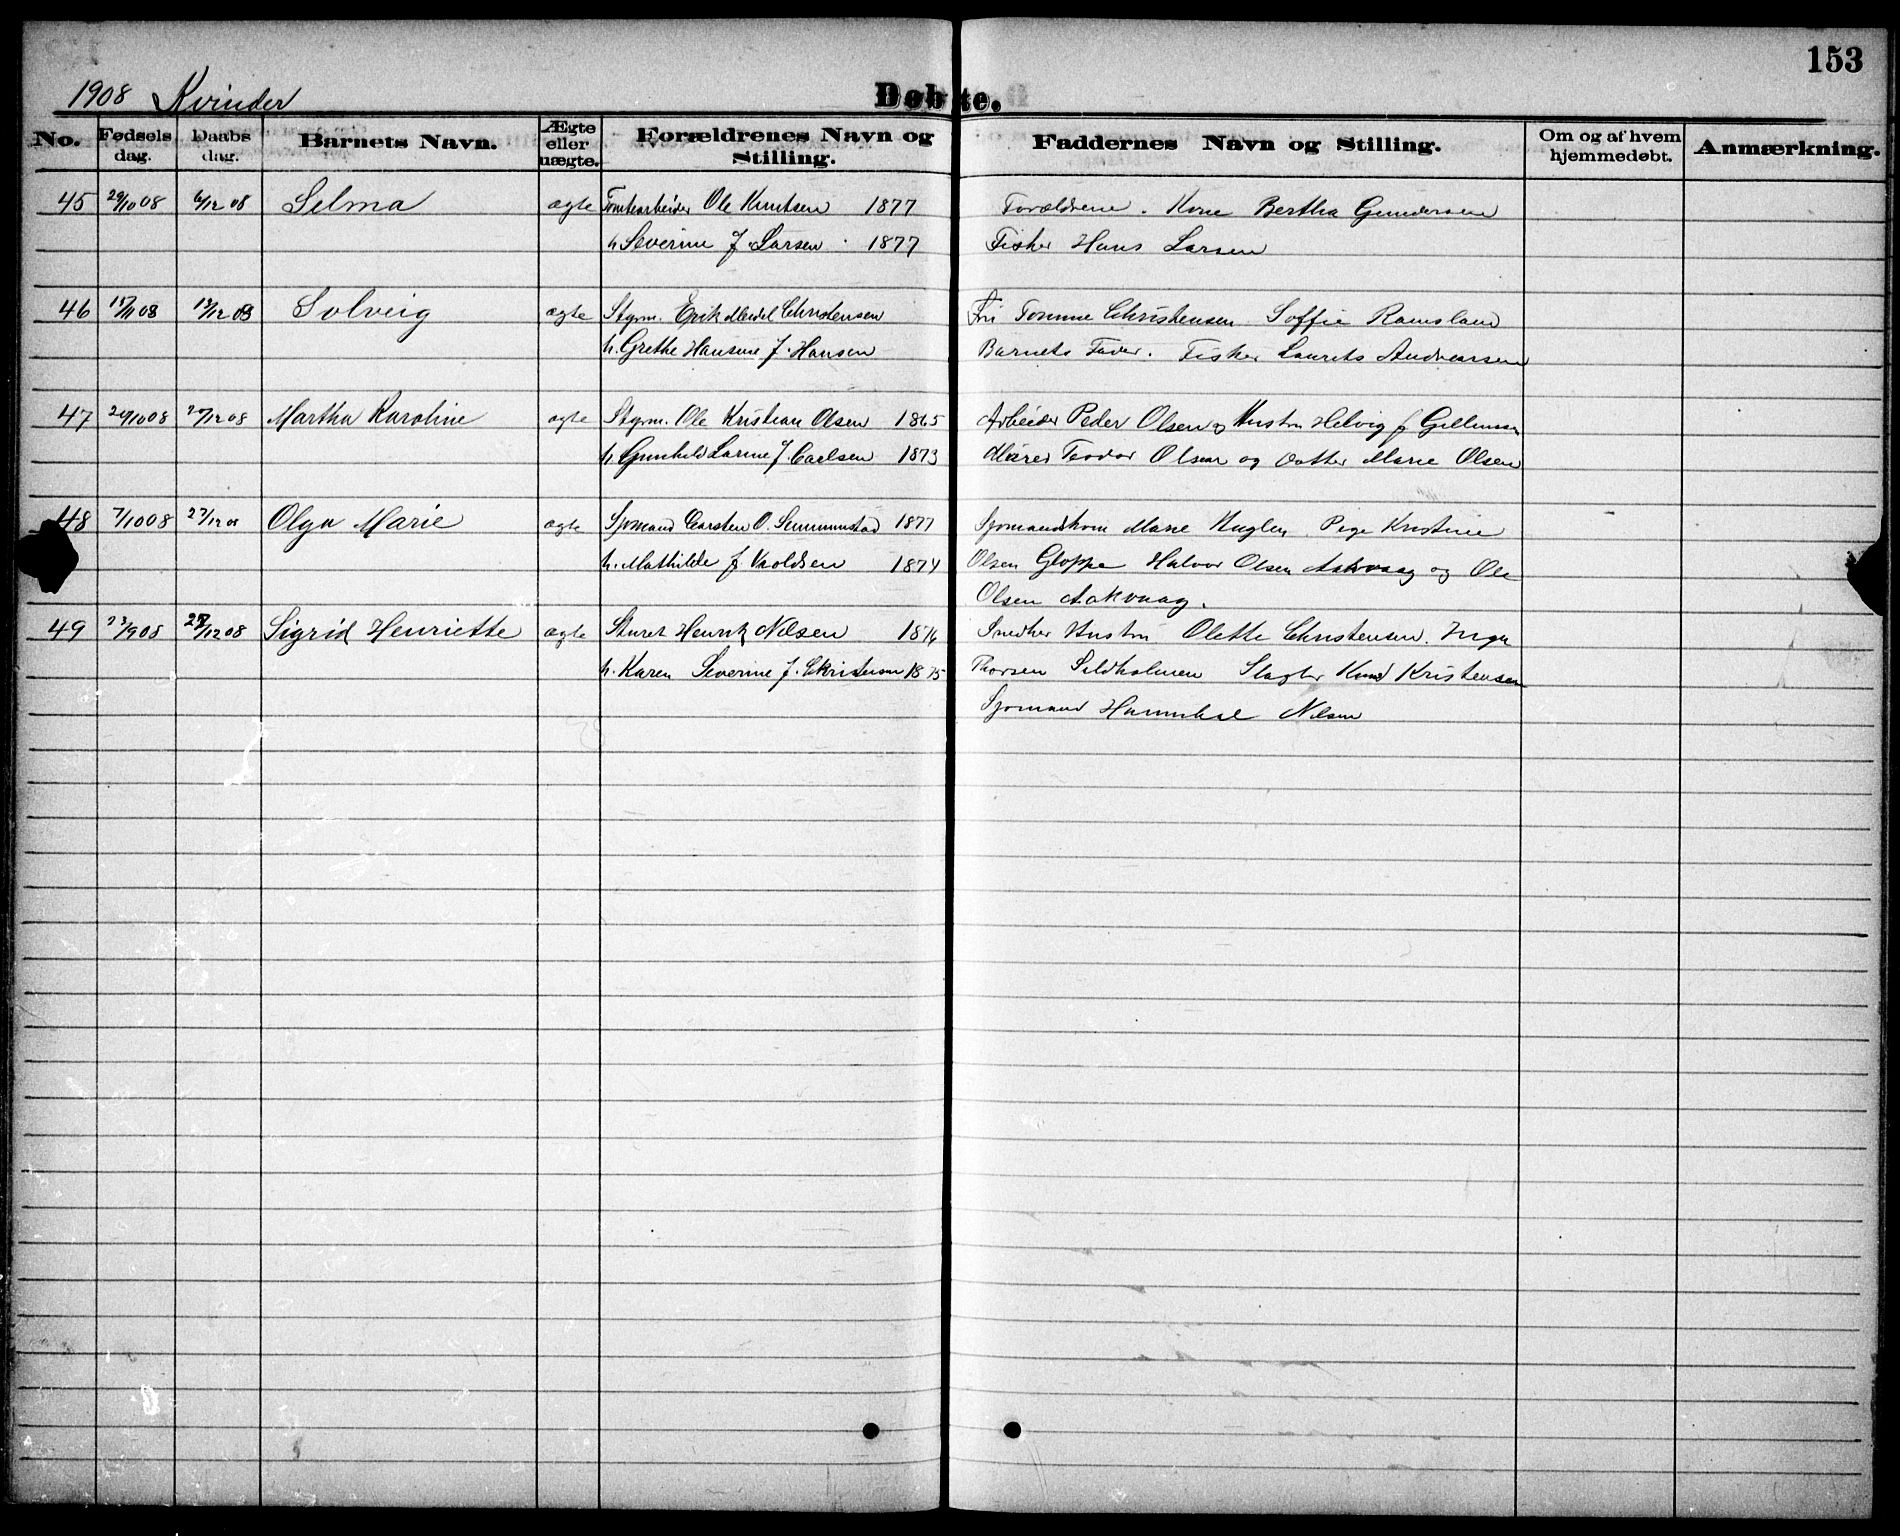 153
1908 Kvinder
Døbte.
No. Fødsels dag. Daabs dag. Barnets Navn. Ægte eller uægte. Forældrenes Navn og Stilling. Faddernes Navn og Stilling. Om og af hvem hjemmedøbt. Anmærkning.
45 29/10 08 6/12 08 Selma ægte Tomtearbeider Ole Knutsen 1877 Forældrene. Kone Bertha Gundersen
h. Severine f. Larsen 1877 Fisker Hans Larsen
46 15/11 08 13/12 08 Solveig ægte Styrm. Erik Christensen Tomine Christensen Soffie Ramsland
h. Grethe Hansine f. Hansen Barnets Fader. Fisker Laurets Andreassen
47 24/10 08 20/12 08 Martha Karoline ægte Styrm. Ole Kristian Olsen 1865 Arbeider Peder Olsen og Hustru Helvig f.
h. Gunhild Larine f. Carlsen 1873 Teodor Olsen og Datter Marie Olsen
48 7/10 08 27/12 08 Olga Marie ægte Sjømand Carsten O. 1877 Sjømandskone Marie Huglen. Pige Kristine
h. Mathilde f. 1874 Olsen Gloppe Halvor Olsen Aakvaag og Ole
Olsen Aakvaag.
49 23/9 08 27/12 08 Sigrid Henriette ægte Henrik Nilsen 1876 Smedker Hustru Olette Christensen. Inga
h. Karen Severine f. Christensen 1875 Thorsen Sildholmen Slagter Knud Kristensen
Sjømand Nilsen